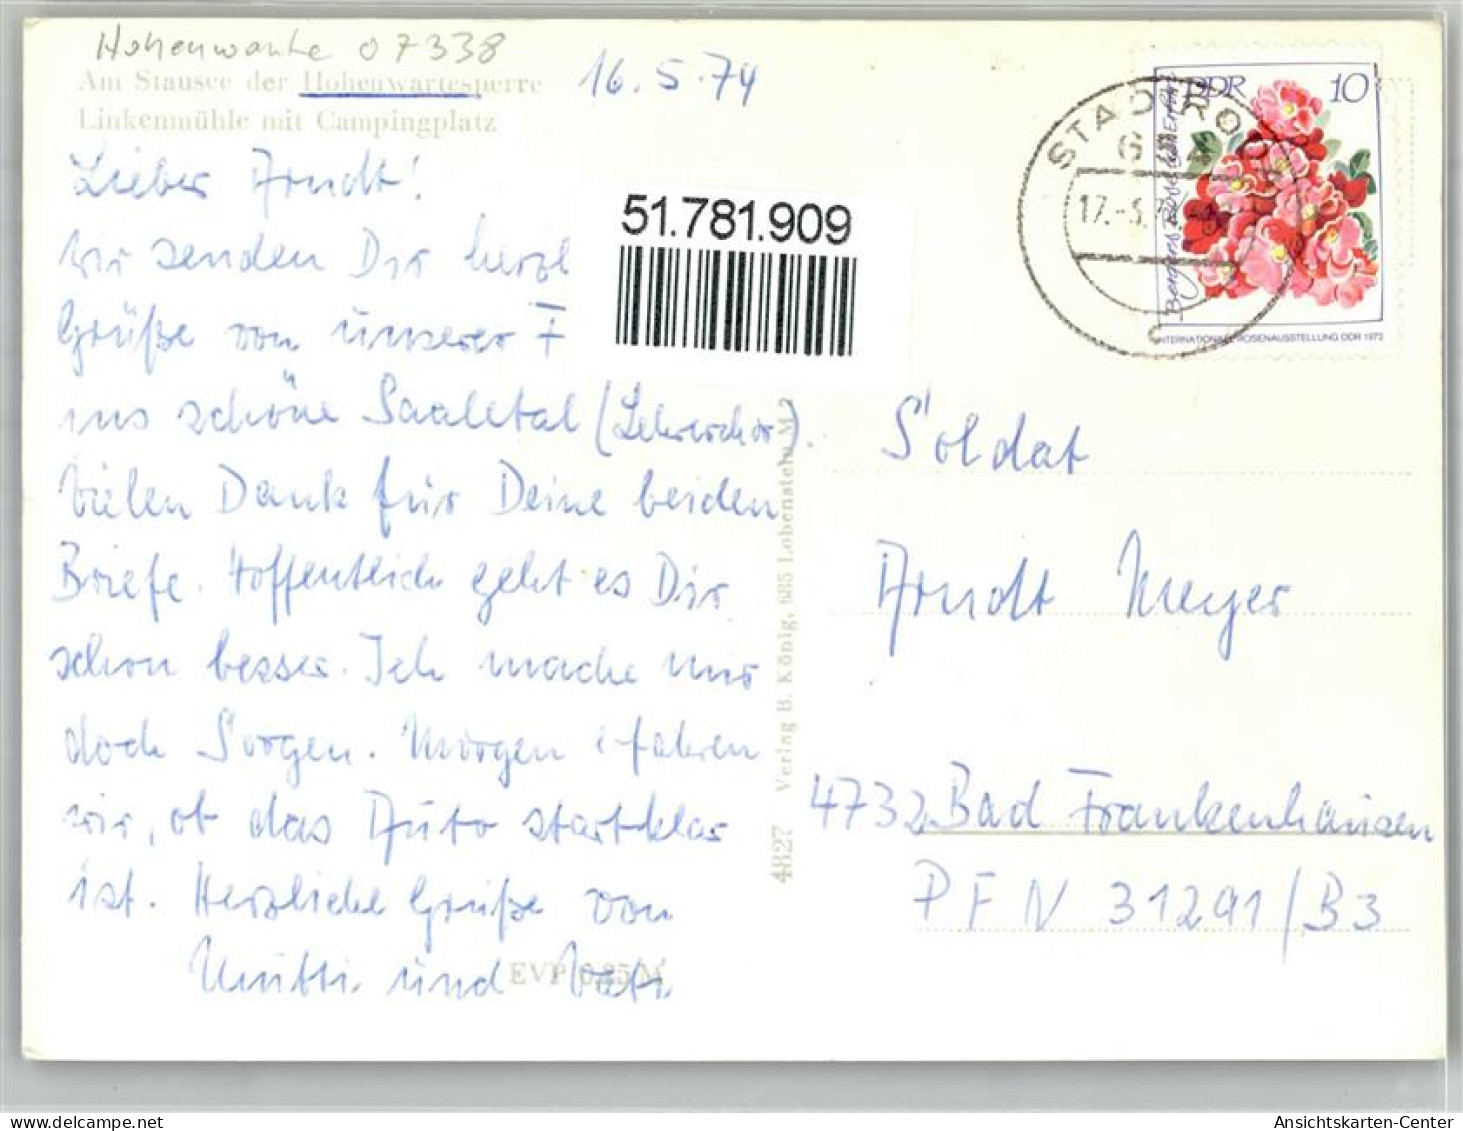 Hohenwarte 07338
Am Stausee der Hohenwartesperre
Linkenmühle mit Campingplatz
16.5.74
Lieber Arndt!
wir senden Dir herzl
Grüße von unserer F
ins schöne Saaletal (Lehrerchor).
Vielen Dank für Deine beiden
Briefe. Hoffentlich geht es Dir
schon besser. Ich mache mir
doch Sorgen. Morgen erfahren
wir, ob das Auto startklar
ist. Herzliche Grüße von
Mutti und Vati
EVP 0,25 M
51.781.909
4827 Verlag B. König, 685 Lobenstein M 2
STADTRO
17.-5.
DDR 10
INTERNATIONALE ROSENAUSSTELLUNG DDR 1972
Soldat
Arndt Meyer
4732 Bad Frankenhausen
PFN 31291/B3
Ansichtskarten-Center